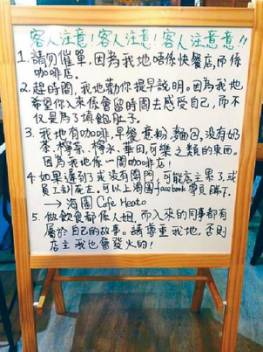 客人注意!客人注意!客人注意!!
1. 請勿催單,因為我地唔係快餐店,而係
咖啡店。
2. 趕時間,我地勸你提早說明。因為我地
希望你入來係會留時間去感受自己,而不
僅是為了填飽肚子。
3. 我地有咖啡、早餐、意粉、麵包,沒有奶
茶、檸茶、檸水、華田、可樂之類的東西。
因為我地係一間咖啡店!
4. 如果遲到了或沒有開門,可能店主累了,或
員工到花左。可以上海園facebook專頁睇下。
→ 海園 Cafe Hea
5. 做飲食都係人姐,而入來的同事都有
屬於自己的故事。請尊重我地,否則
店主我也會發火的!